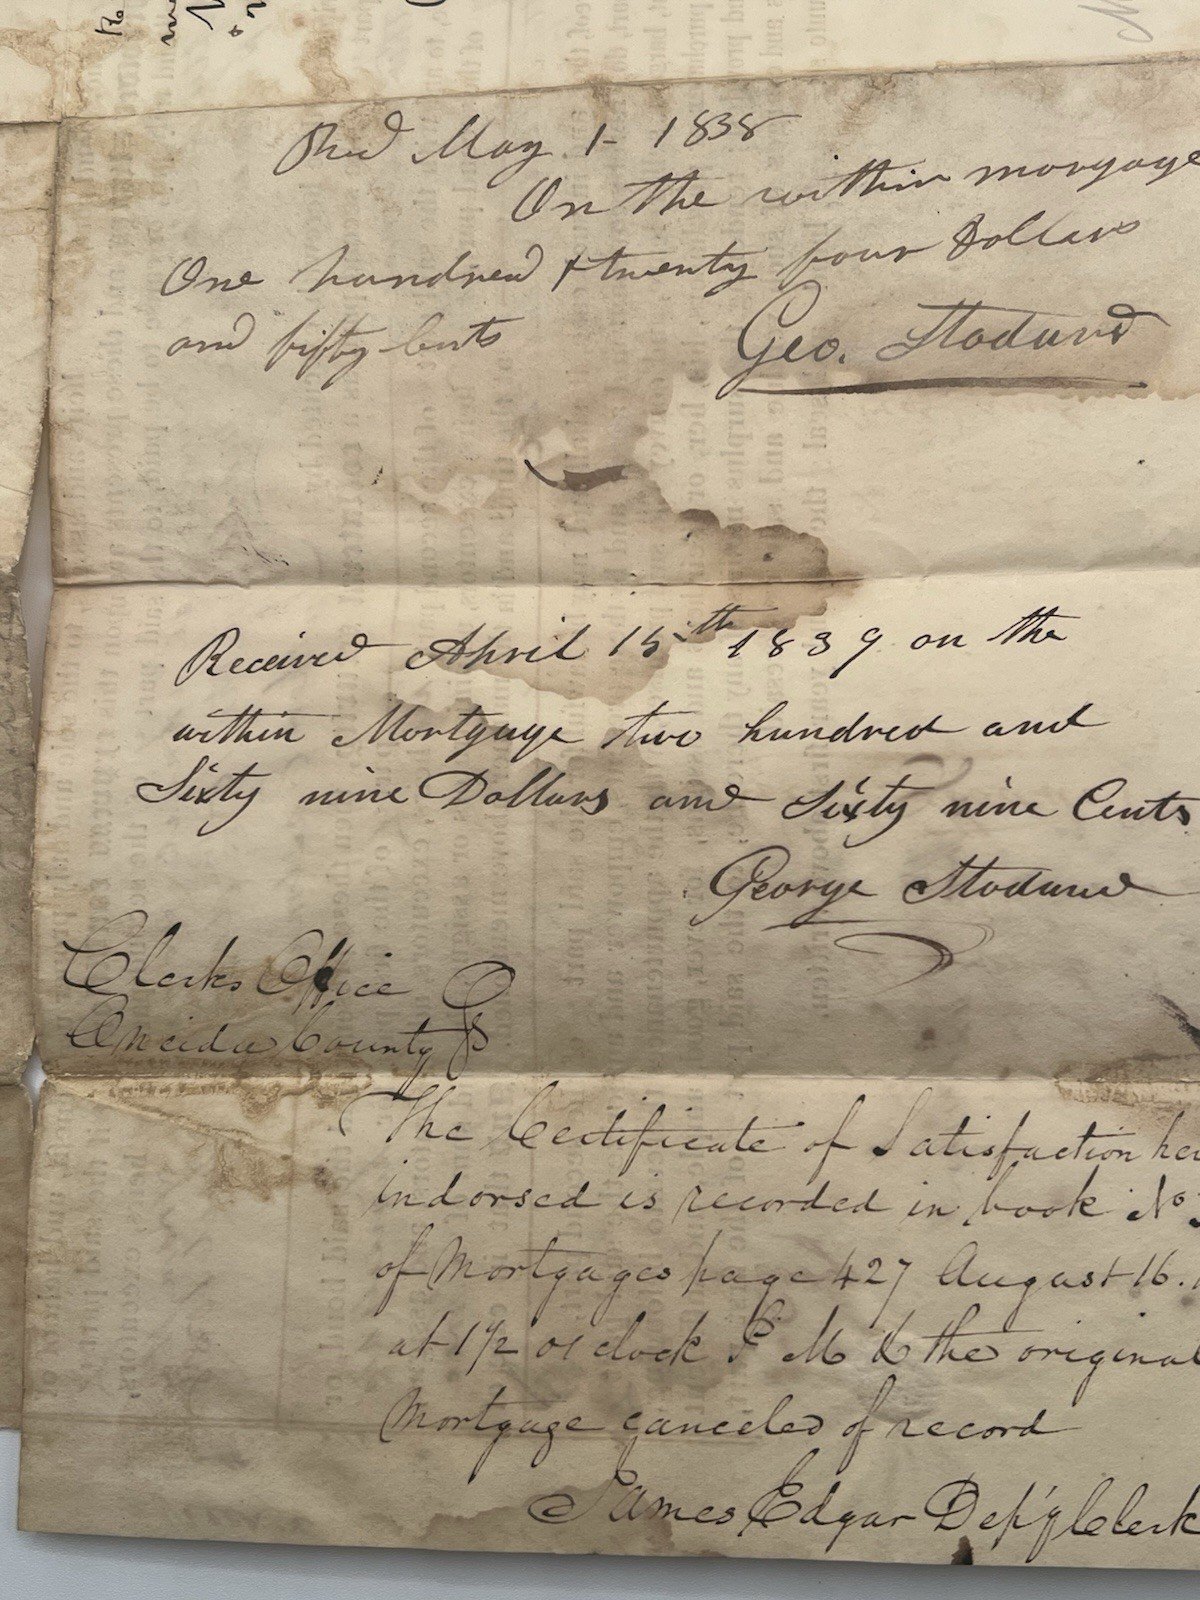 Recd May 1- 1838
On the within morgage
One hundred & twenty four Dollars
and fifty Cents
Geo. Stodard
Received April 15th 1839 on the
within Mortgage two hundred and
Sixty nine Dollars and Sixty nine Cents
George Stodard
Clerks Office
Oneida County
The Certificate of Satisfaction
indorsed is recorded in book No
of Mortgages page 427 August 16.
at 1 1/2 o'clock P M & the original
Mortgage canceled of record
James Edgar Dep'y Clerk